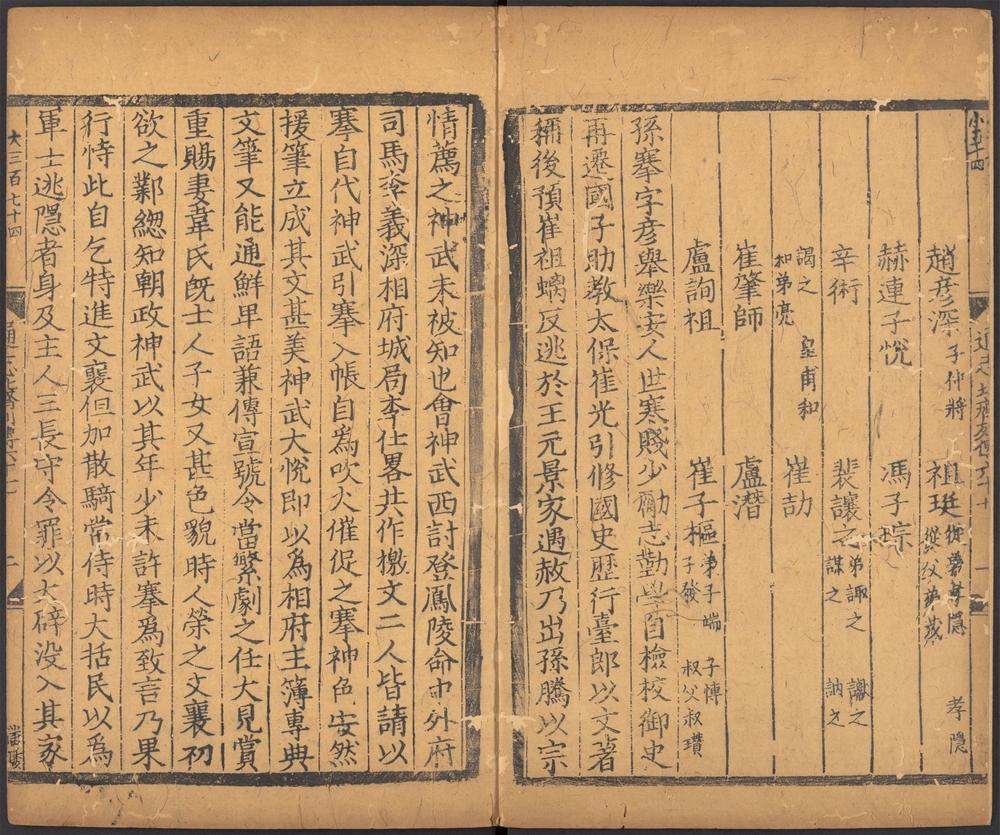 小五十四
趙彥深 子仲將 祖珽 弟孝隱 從父弟茂 孝隱
赫連子悅 馮子琮
辛術 裴讓之 弟諏之 謀之 讞之 訥之
謁之 和弟亮 皇甫和 崔劼
崔肇師 盧潛
盧詢祖 崔子樞 弟子端 子發 子慱 叔父叔瓚
孫搴字彥舉樂安人世寒賤少勵志勤學自檢校御史
再遷國子助教太保崔光引修國史歷行臺郎以文著
稱後預崔祖螭反逃於王元景家遇赦乃出孫騰以宗
情薦之神武未被知也會神武西討登鳳陵命中外府
司馬李義深相府城局李仕畧共作檄文二人皆請以
搴自代神武引搴入帳自爲吹火催促之搴神色安然
援筆立成其文甚美神武大悅即以爲相府主簿專典
文筆又能通鮮卑語兼傳宣號令當繁劇之任大見賞
重賜妻韋氏旣士人子女又甚色貌時人榮之文襄初
欲之鄴緫知朝政神武以其年少未許搴爲致言乃果
行恃此自乞特進文襄但加散騎常侍時大括民以爲
軍士逃隱者身及主人三長守令罪以大辟没入其家
大三百七十四